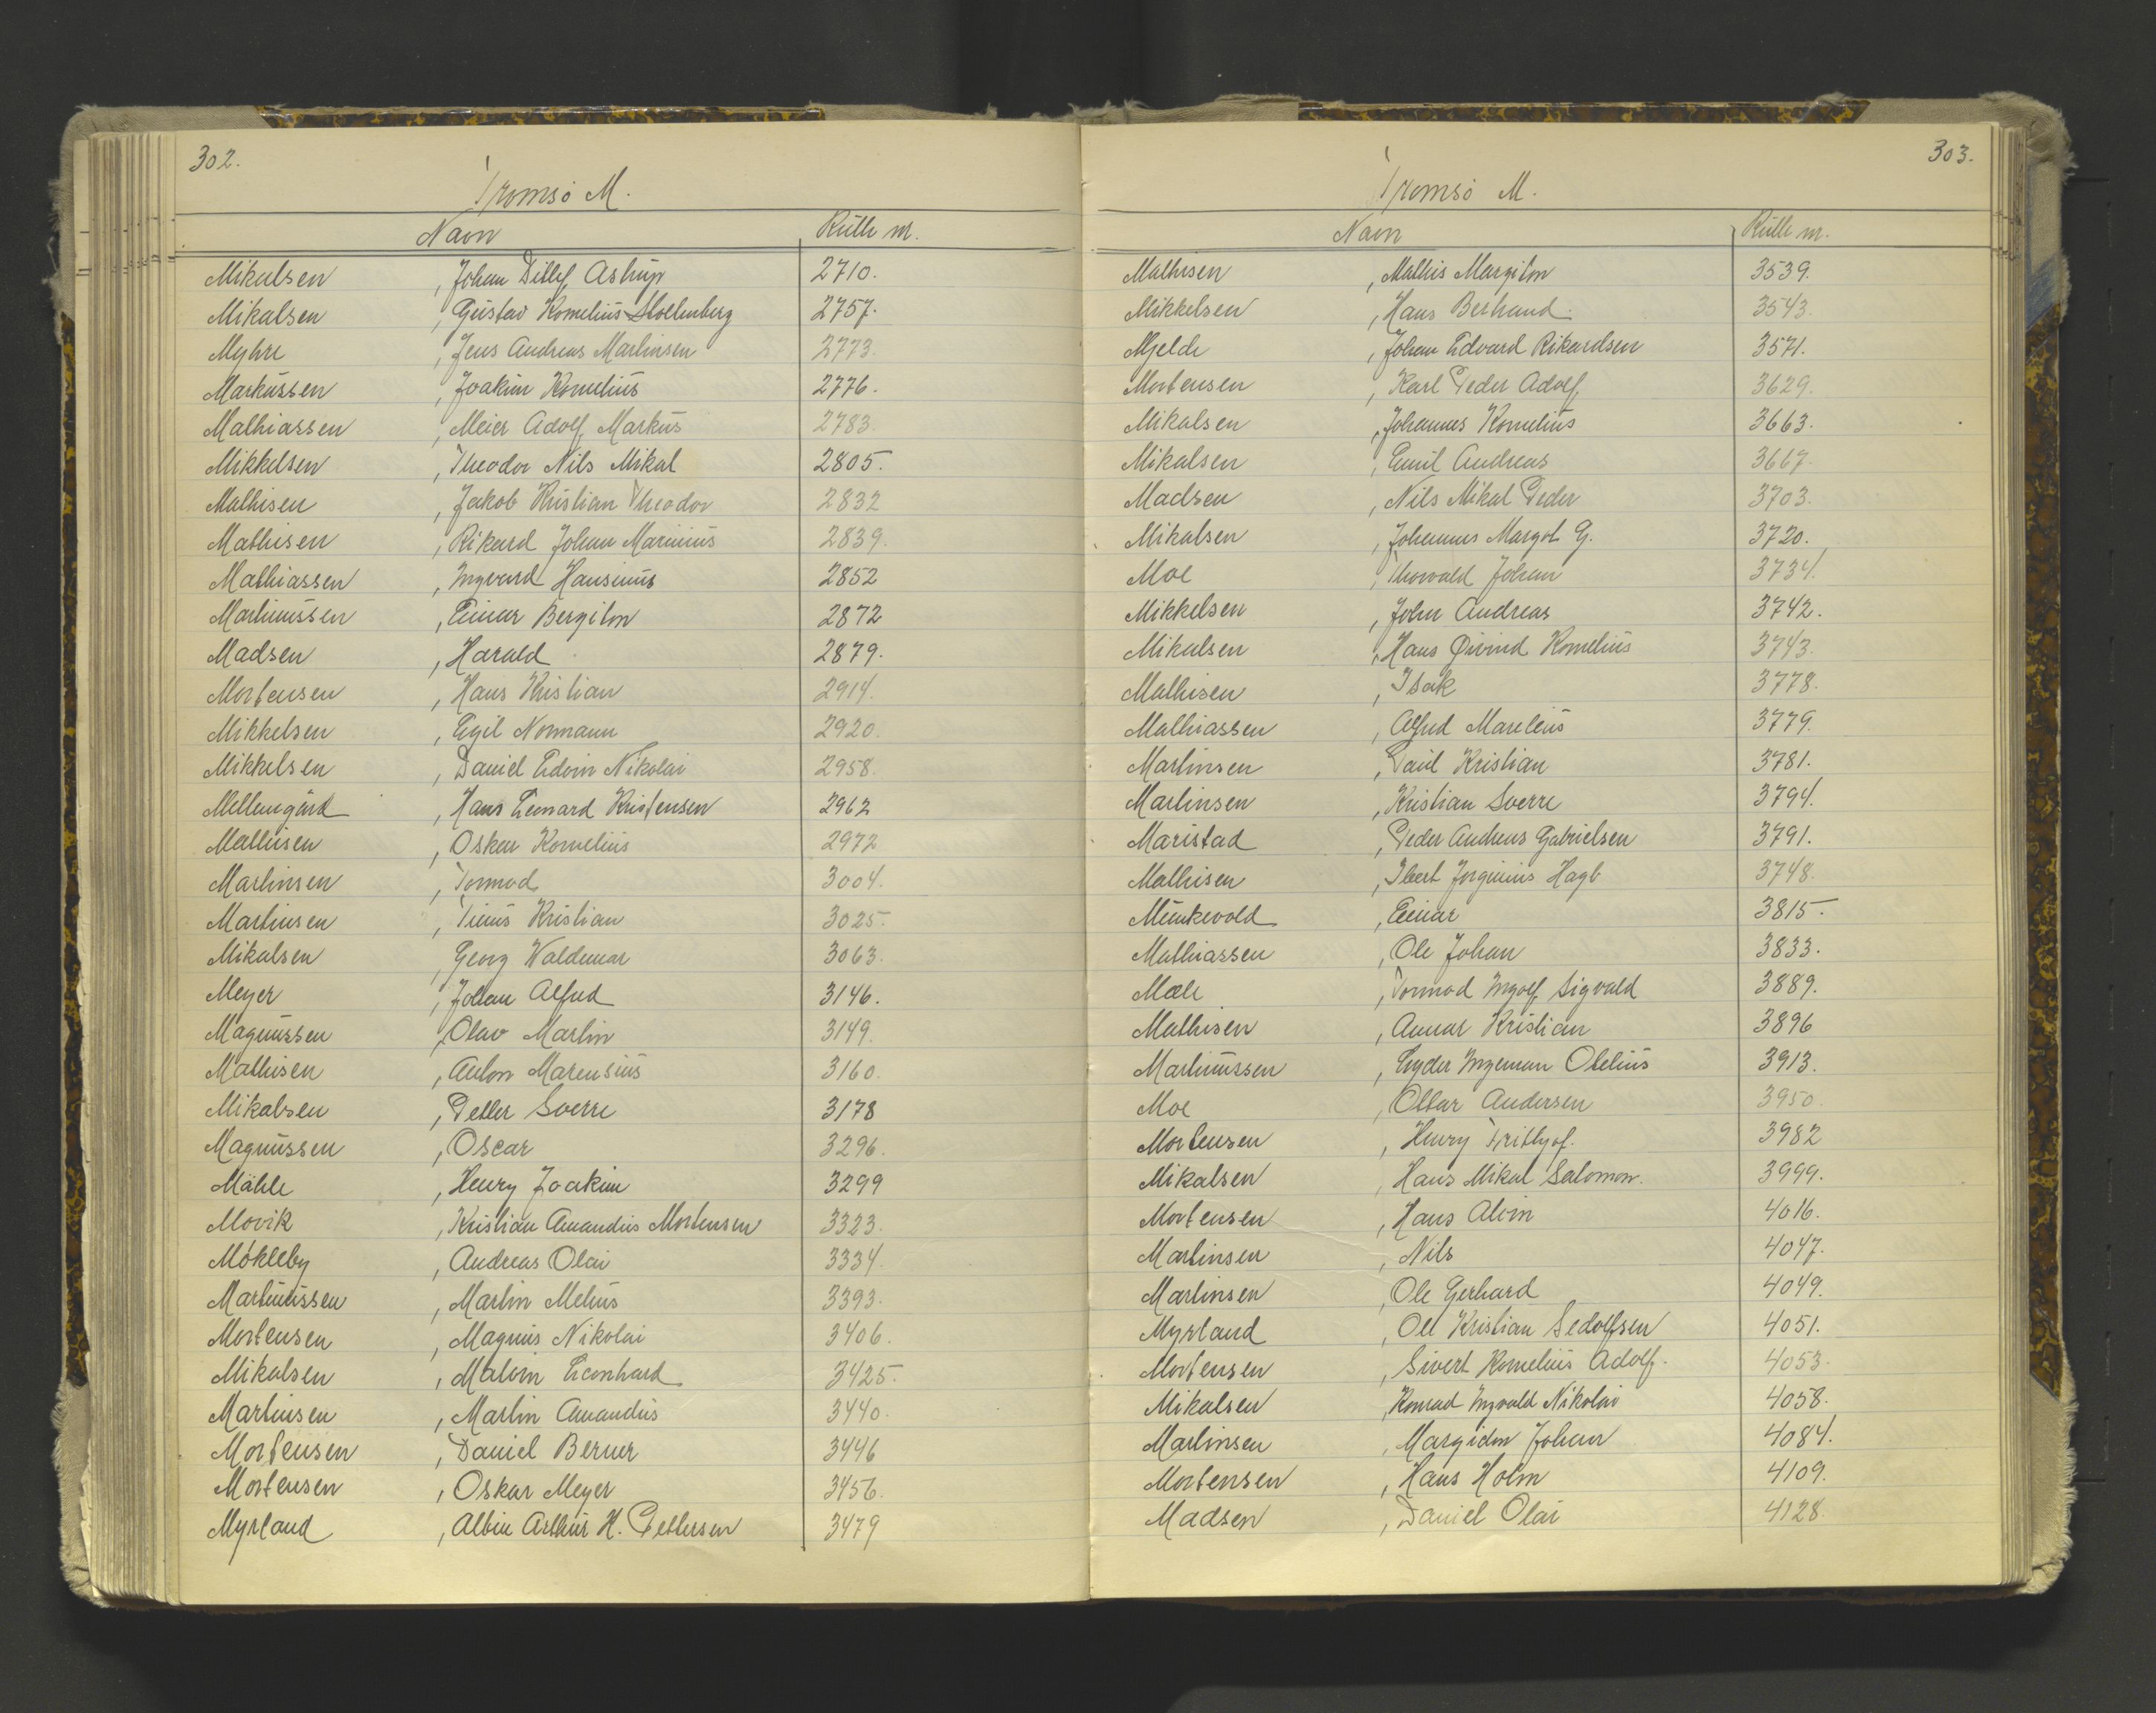 302.
Tromsø M.
Navn Rulle nr.
Mikalsen, Johan Ditlef Astrup 2710.
Mikalsen, Gustav Kornelius Stoltenberg 2757.
Myhre, Jens Andreas Martinsen 2773.
Markussen, Joakim Kornelius 2776.
Mathiassen, Meier Adolf Markus 2783.
Mikkelsen, Theodor Nils Mikal 2805.
Mathisen, Jakob Kristian Theodor 2832
Mathisen, Rikard Johan Marinius 2839.
Mathiassen, Ingvard Hansinus 2852
Martinussen, Einar Bergiton 2872
Madsen, Harald 2879.
Mortensen, Hans Kristian 2914.
Mikkelsen, Egil Normann 2920.
Mikkelsen, Daniel Edvin Nikolai 2958.
Mellemgård, Hans Leonard Kristensen 2962
Mathisen, Oskar Kornelius 2972
Martinsen, Tormod 3004.
Martinsen, Tinus Kristian 3025.
Mikalsen, Georg Waldemar 3063.
Meyer, Johan Alfred 3146.
Magnussen, Olav Martin 3149.
Mathisen, Anton Marensius 3160.
Mikalsen, Petter Sverre 3178
Magnussen, Oscar 3296.
Mähle, Henry Joakim 3299
Movik, Kristian Amandus Mortensen 3323.
Møkleby, Andreas Olai 3334.
Martinussen, Martin Melius 3393.
Mortensen, Magnus Nikolai 3406.
Mikalsen, Malvin Leonhard 3425.
Martinsen, Martin Amandus 3440.
Mortensen, Daniel Berner 3446
Mortensen, Oskar Meyer 3456.
Myrland, Albin Arthur H. Pettersen 3479
303.
Tromsø M.
Navn Rulle nr.
Mathisen, Mathis Margiton 3539.
Mikkelsen, Hans Berhand. 3543.
Mjelde, Johan Edvard Rikardsen 3571.
Mortensen, Karl Peder Adolf 3629.
Mikalsen, Johannes Kornelius 3663.
Mikalsen, Emil Andreas 3667.
Madsen, Nils Mikal Peder 3703.
Mikalsen, Johannes Margot G. 3720.
Moe, Thorvald Johan 3734.
Mikkelsen, John Andreas 3742.
Mikalsen, Hans Øivind Kornelius 3743.
Mathisen, Isak 3778.
Mathiassen, Alfred Marelius 3779.
Martinsen, Paul Kristian 3781.
Martinsen, Kristian Sverre 3794.
Maristad, Peder Andreas Gabrielsen 3791.
Mathisen, Ibert Jørginius Hagb 3748.
Munkevold, Einar 3815.
Mathiassen, Ole Johan 3833.
Mæle, Tormod Ingolf Sigvald 3889.
Mathisen, Annar Kristian 3896
Martinussen, Lyder Ingeman Otelius 3913.
Moe, Ottar Andersen 3950.
Mortensen, Henry Frithjof. 3982
Mikalsen, Hans Mikal Salomon. 3999.
Mortensen, Hans Alvin 4016.
Martinsen, Nils 4047.
Martinsen, Ole Gerhard 4049.
Myrland, Ole Kristian Sedolfsen 4051.
Mortensen, Sivert Kornelius Adolf. 4053.
Mikalsen, Konrad Ingvald Nikolai 4058.
Martinsen, Margidon Johan 4084.
Mortensen, Hans Holm 4109.
Madsen, Daniel Olai 4128.